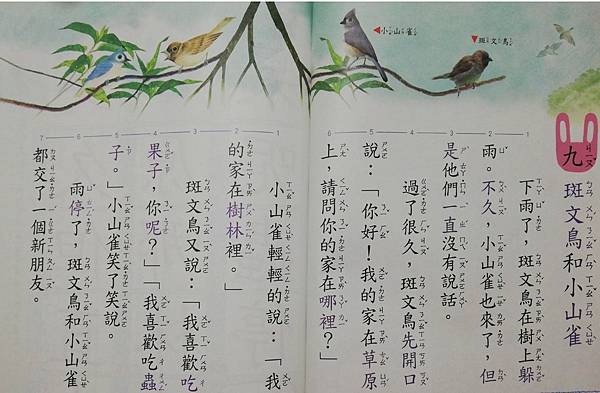 九 斑文鳥和小山雀
斑文鳥
小山雀
下雨了，斑文鳥在樹上躲
雨。不久，小山雀也來了，但
是他們一直沒有說話。
過了很久，斑文鳥先開口
說：「你好！我的家在草原
上，請問你的家在哪裡？」
小山雀輕輕的說：「我
的家在樹林裡。」
斑文鳥又說：「我喜歡吃
果子，你呢？」「我喜歡吃蟲
子。」小山雀笑了笑說。
雨停了，斑文鳥和小山雀
都交了一個新朋友。